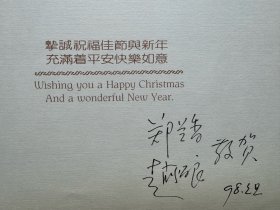 摯誠祝福佳節與新年
充滿着平安快樂如意
Wishing you a Happy Christmas
And a wonderful New Year.
郑
敬贺